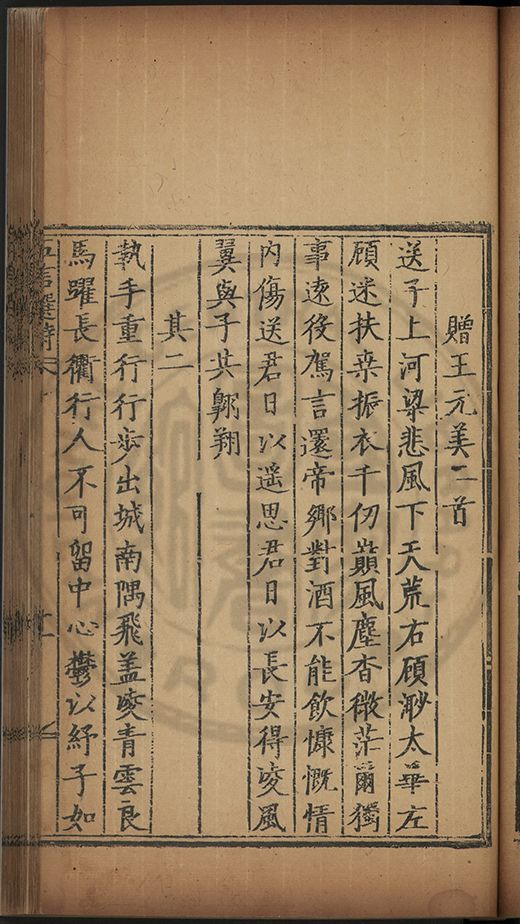 贈王元美二首
送子上河梁悲風下天荒右顧渺太華左
顧迷扶桒振衣千仞巔風塵杳微茫爾獨
事遠役駕言還帝鄉對酒不能飲慷慨情
内傷送君日以遥思君日以長安得凌風
翼與子共翱翔
其二
執手重行行步出城南隅飛盖凌青雲良
馬躍長衢行人不可留中心鬱以紆子如
五言選詩